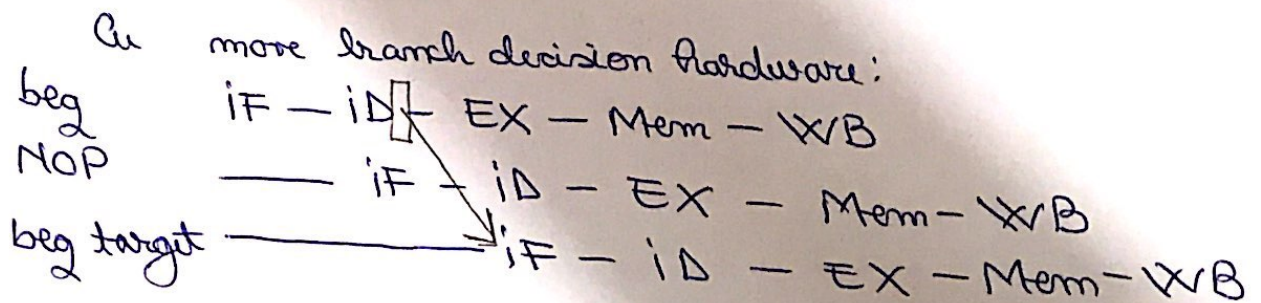 Cu more branch decision hardware:
beq iF - iD - EX - Mem - WB
NOP iF - iD - EX - Mem - WB
beq target iF - iD - EX - Mem - WB